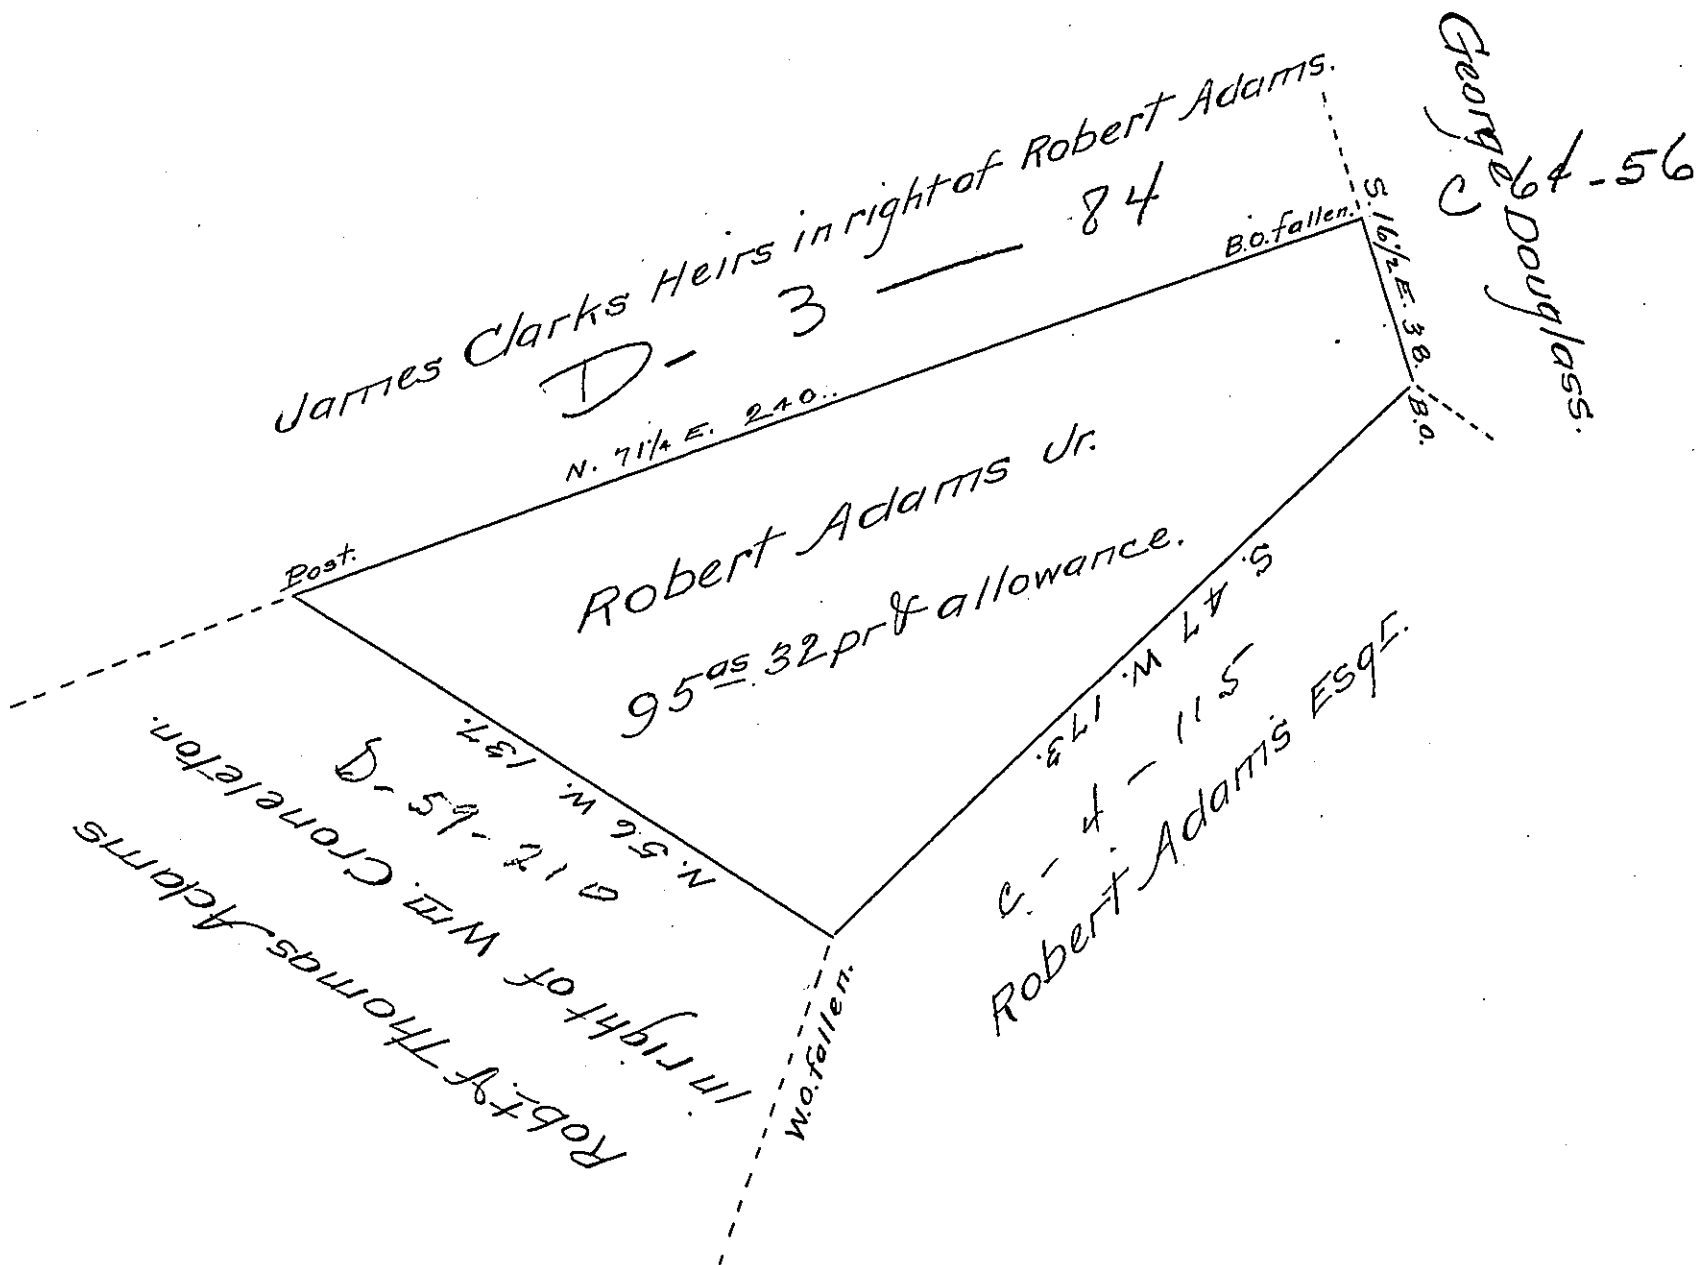 James Clarks Heirs in right of Robert Adams.
D- 3 — 84
George Douglass.
C 64-56
B.O. fallen.
S. 16 1/2 E. 38.
B.O.
N. 71 1/4 E. 240.
Post.
Robert Adams Jr.
95 as. 32 pr & allowance.
S. 47 W. 173.
C. - 4 - 115
Robert Adams Esqr.
N. 56 W. 137.
D- 59-
in right of Wm. Croneleton.
Robt. & Thomas Adams
W.O. fallen.